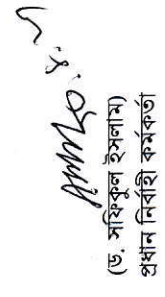 (ড. সফিকুল ইসলাম)
প্রধান নির্বাহী কর্মকর্তা